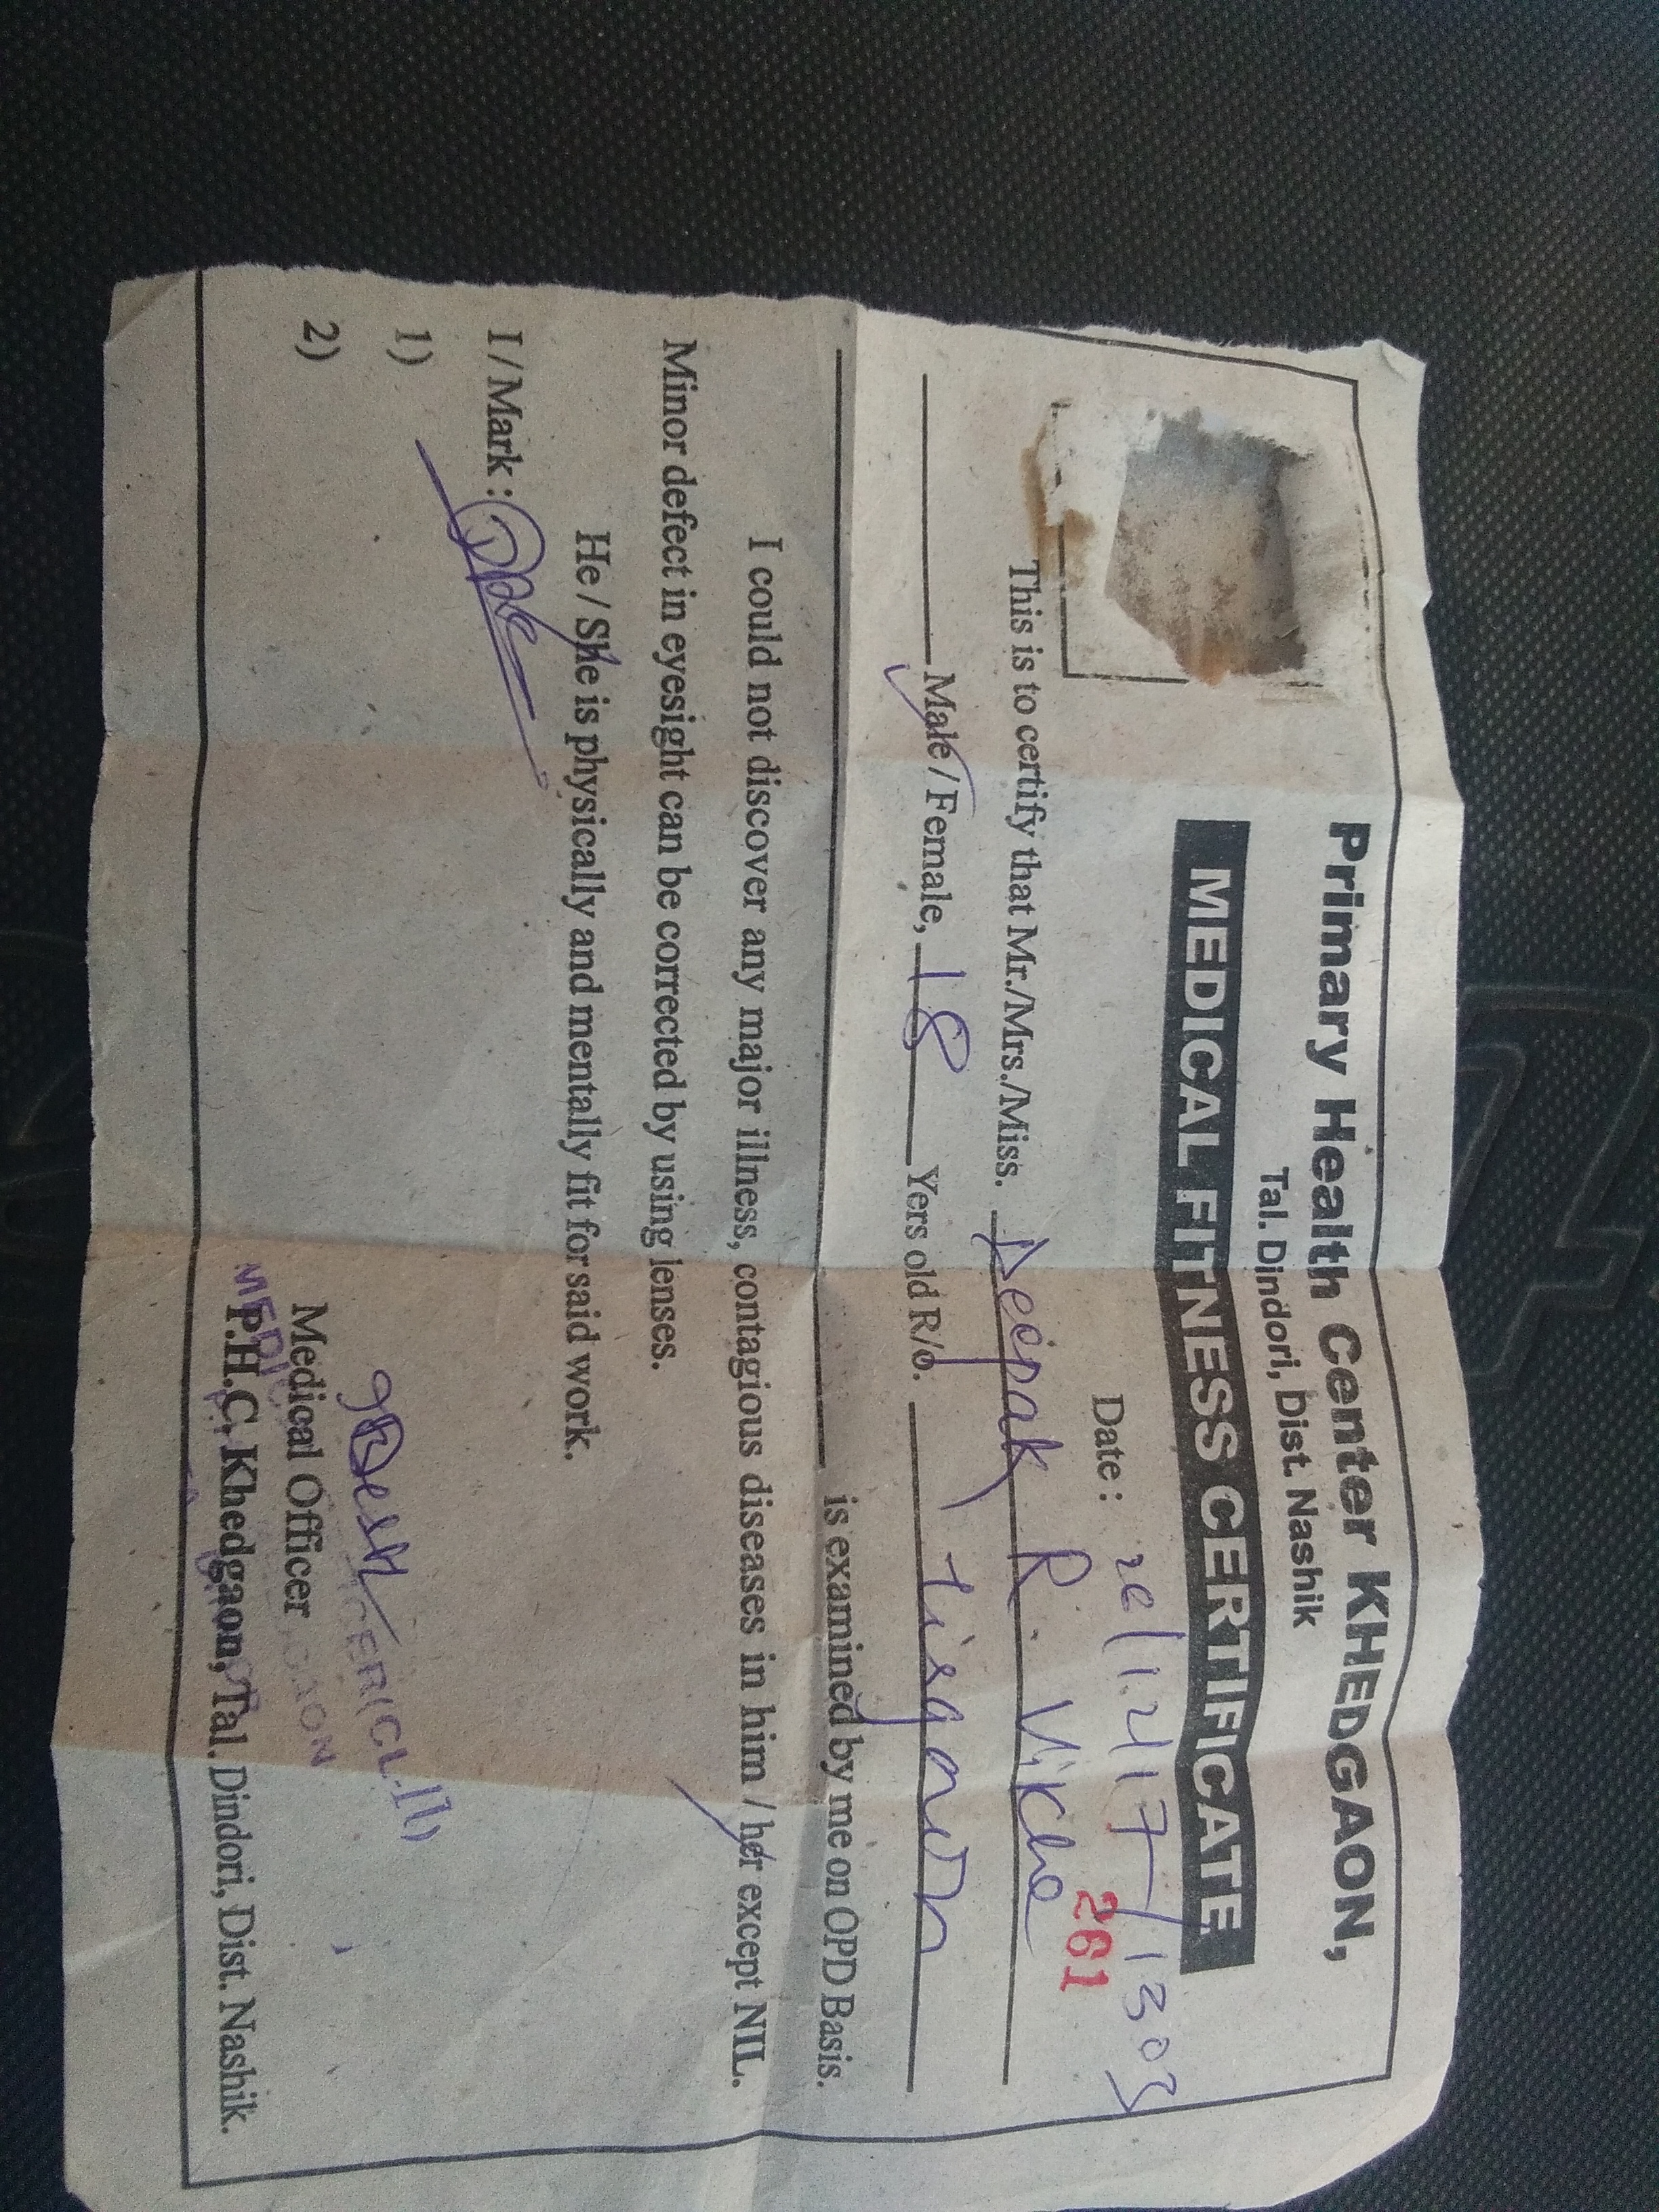 Primary Health Center KHEDGAON,
Tal. Dindori, Dist. Nashik
MEDICAL FITNESS CERTIFICATE
Date : 261
This is to certify that Mr./Mrs./Miss. Deepak R. Viche
Male / Female, 18 Yers old R/o. Tisgaon
is examined by me on OPD Basis.
I could not discover any major illness, contagious diseases in him / her except NIL.
Minor defect in eyesight can be corrected by using lenses.
He / She is physically and mentally fit for said work.
I / Mark :
1)
2)
Medical Officer
P.H.C, Khedgaon, Tal. Dindori, Dist. Nashik.